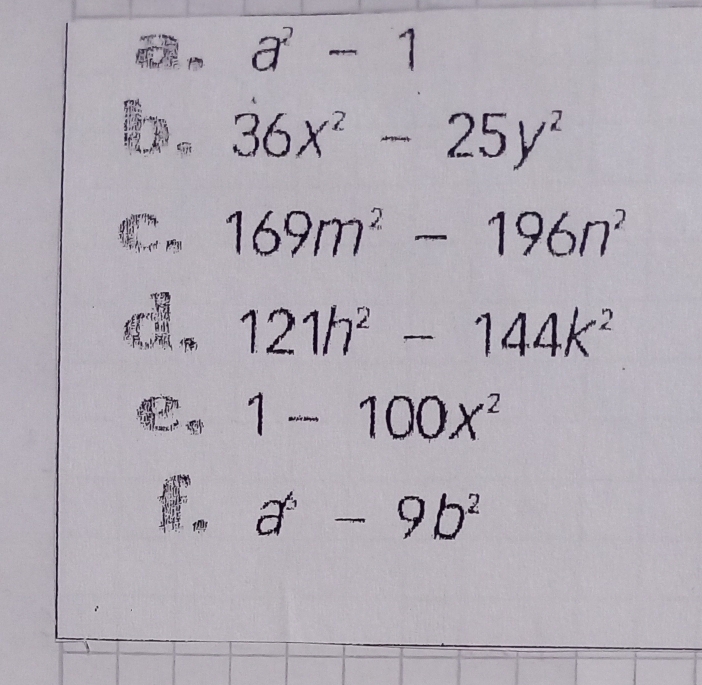 a. a² - 1
b. 36x² - 25y²
c. 169m² - 196n²
d. 121h² - 144k²
e. 1 - 100x²
f. a⁶ - 9b²